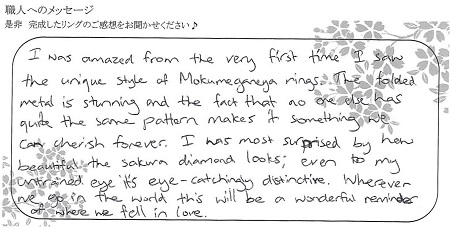 職人へのメッセージ
是非 完成したリングのご感想をお聞かせください♪
I was amazed from the very first time I saw
the unique style of Mokumeganeya rings. The folded
metal is stunning and the fact that no one else has
quite the same pattern makes it something we
can cherish forever. I was most surprised by how
beautiful the sakura diamond looks; even to my
untrained eye it's eye-catchingly distinctive. Wherever
we go in the world this will be a wonderful reminder
of where we fell in love.